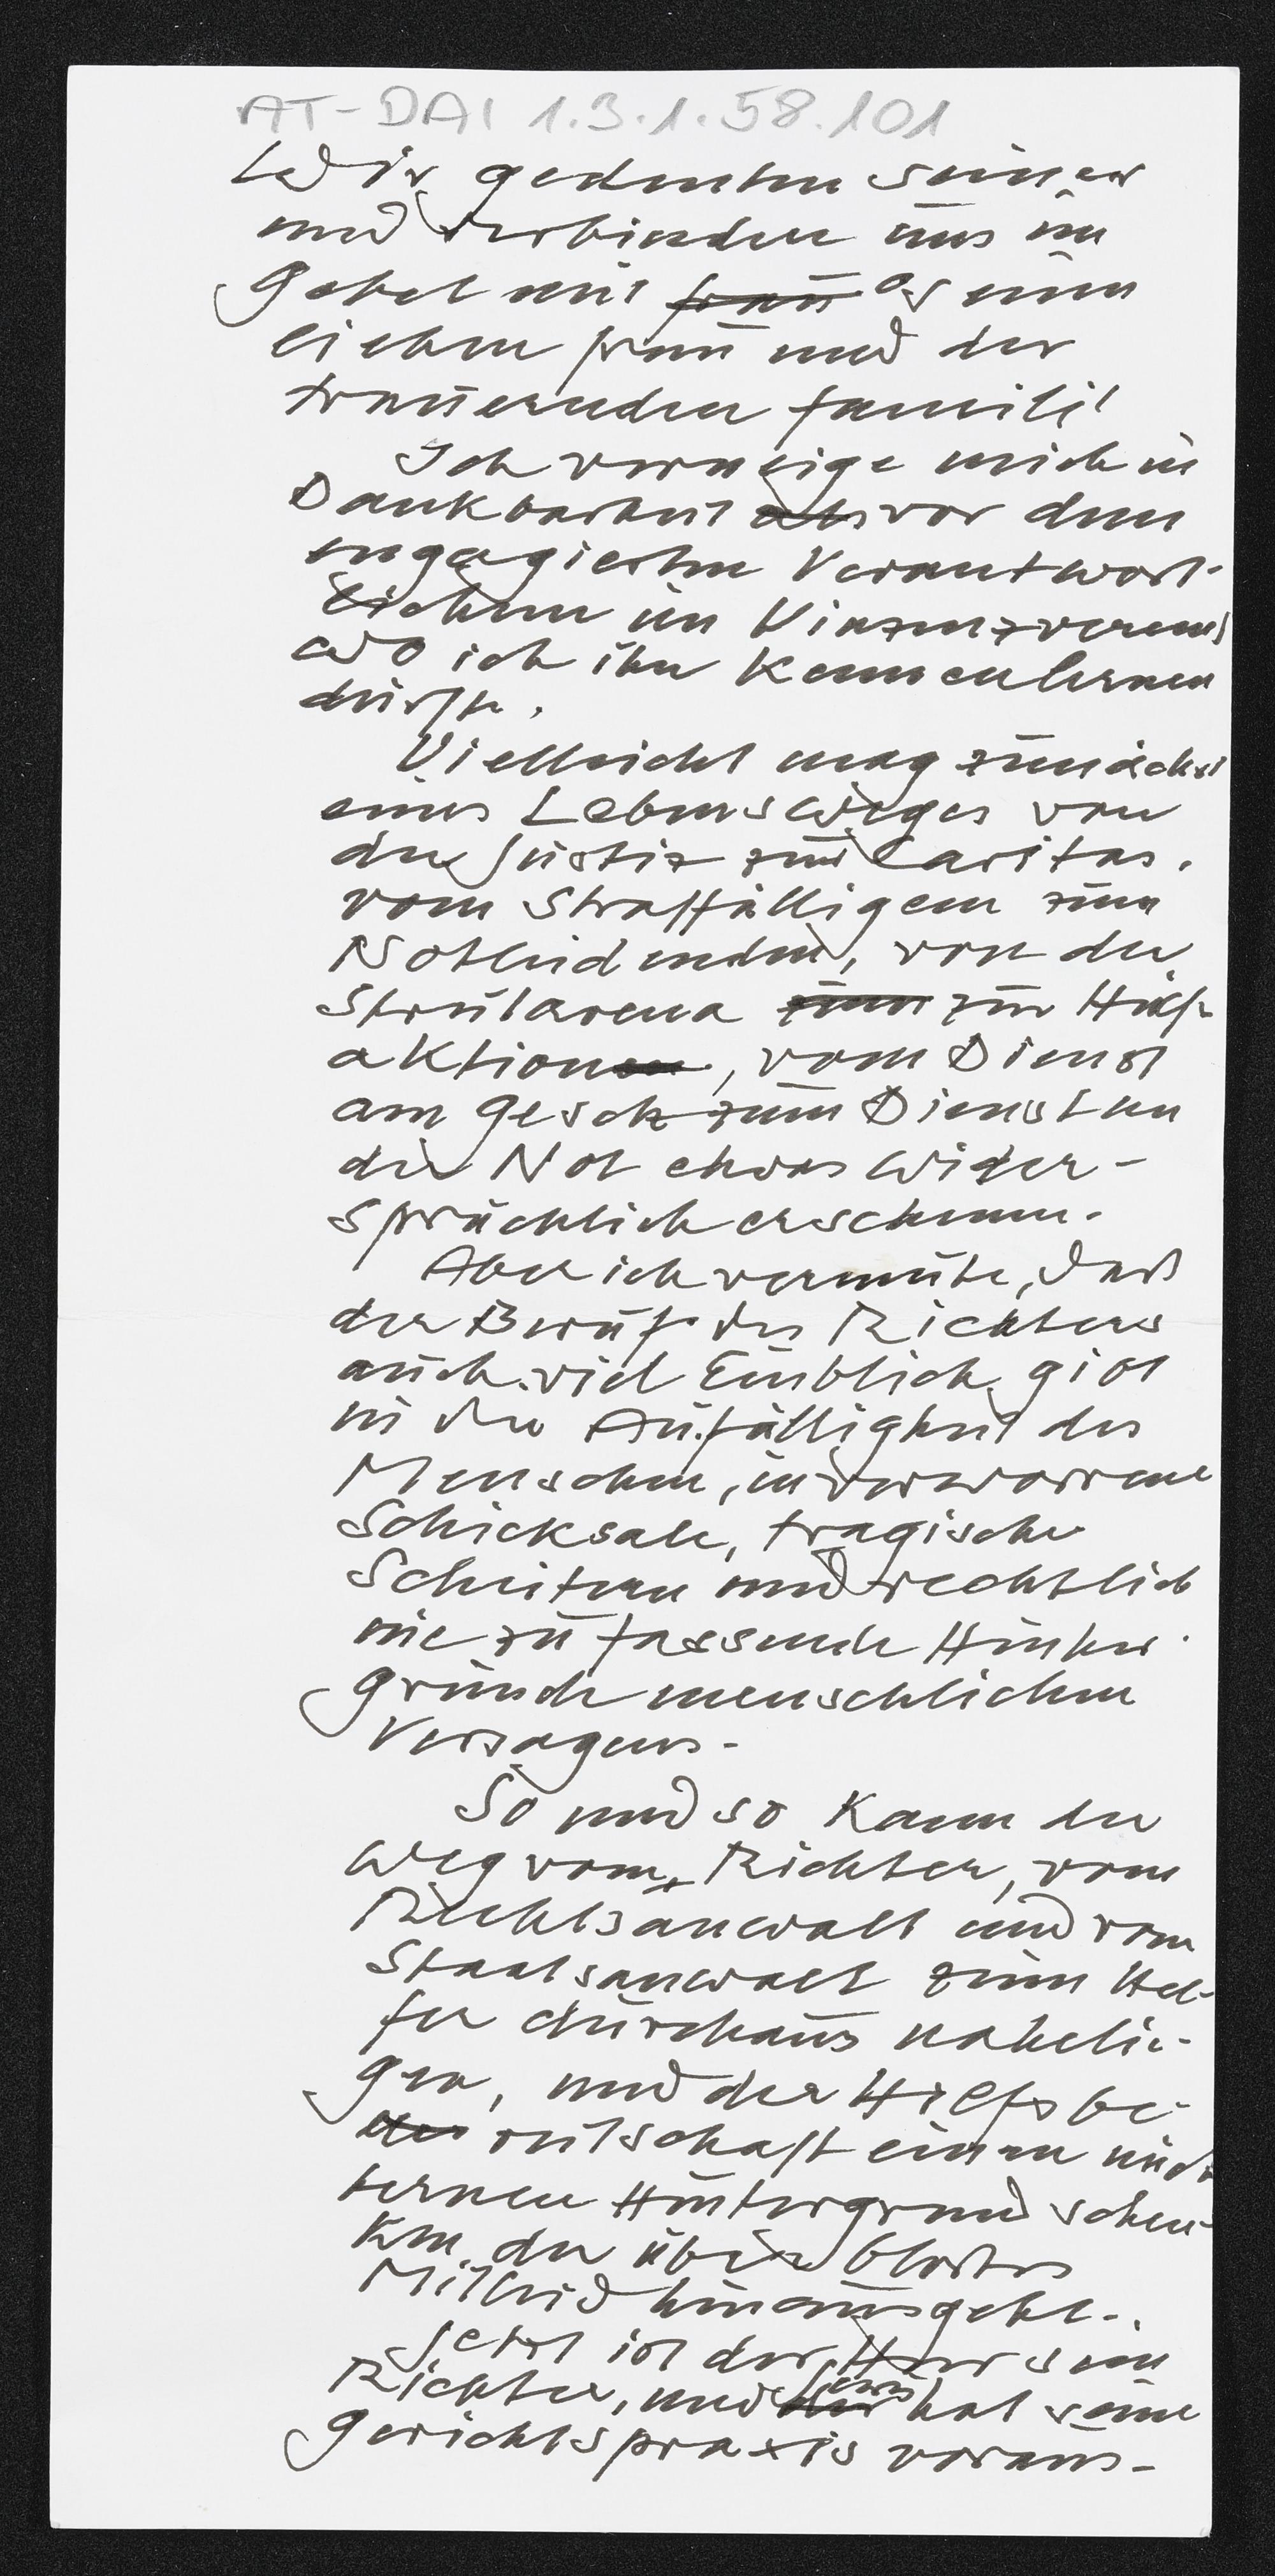 AT-DAI 1.3.1.58.101
Wir gedenken seiner
und verbinden uns im
Gebet mit seiner
lieben Frau und der
trauernden Familie
Ich verneige mich in
Dankbarkeit vor dem
engagierten Verantwort-
lichen im Vinzenzverein,
wo ich ihn kennenlernen
durfte.
Vielleicht mag zunächst
eines Lebensweges von
der Justiz zur Caritas,
vom Straffälligen zum
Notleidenden, von der
Streitarena zur Hilfs-
aktion, vom Dienst
am Gesetz zum Dienst an
der Not etwas wider-
sprüchlich erscheinen.
Aber ich vermute, daß
der Beruf des Richters
auch viel Einblick gibt
in die Anfälligkeit des
Menschen, in verworrene
Schicksale, tragische
Scheitern und rechtlich
nie zu fassende Hinter-
gründe menschlichen
Versagens.
So und so kann der
Weg vom Richter, vom
Rechtsanwalt und vom
Staatsanwalt zum Hel-
fer durchaus nahelie-
gen, und der Hilfsbe-
reitschaft einen nüch-
ternen Hintergrund schen-
ken, der über bloßes
Mitleid hinausgeht.
Jetzt ist der Herr sein
Richter, und hat seine
Gerichtspraxis voraus-